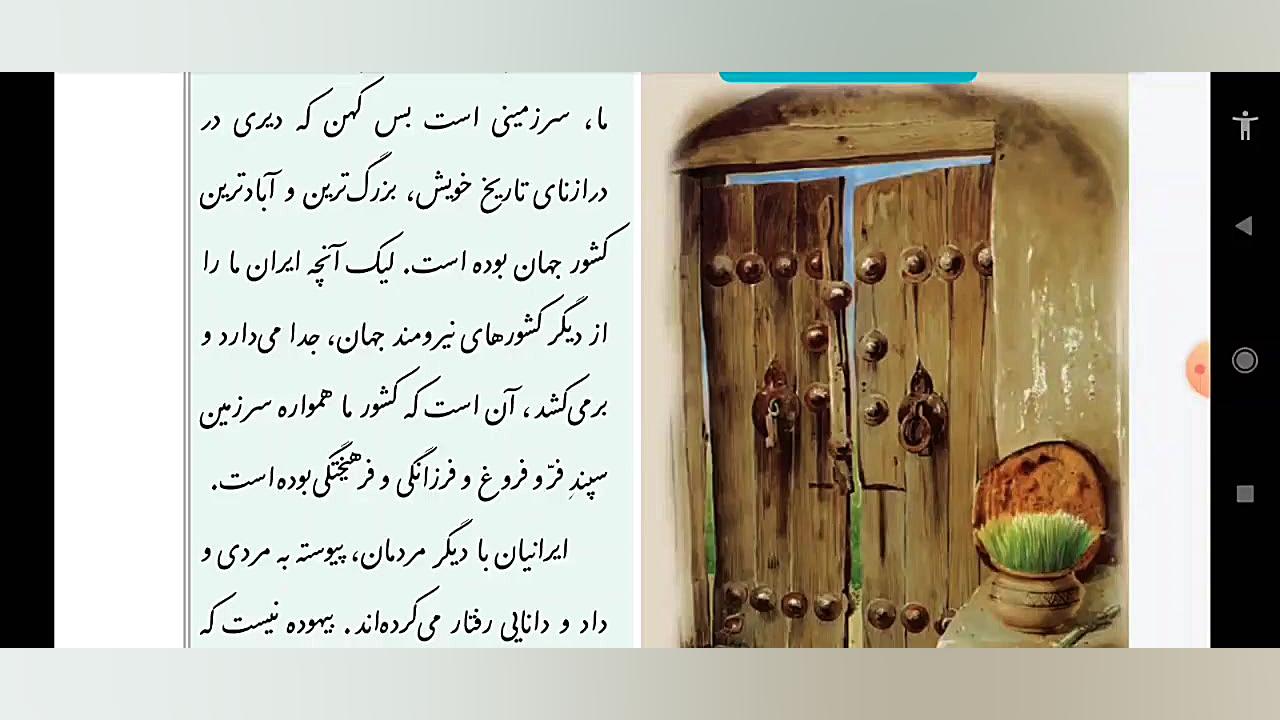 ما، سرزمینی است بس کهن که دیری در
درازنای تاریخ خویش، بزرگ‌ترین و آبادترین
کشور جهان بوده است. لیک آنچه ایران ما را
از دیگر کشورهای نیرومند جهان، جدا می‌دارد و
برمی‌کشد، آن است که کشور ما همواره سرزمین
سپندِ فرّ و فروغ و فرزانگی و فرهیختگی بوده است.
ایرانیان با دیگر مردمان، پیوسته به مردی و
داد و دانایی رفتار می‌کرده‌اند. بیهوده نیست که